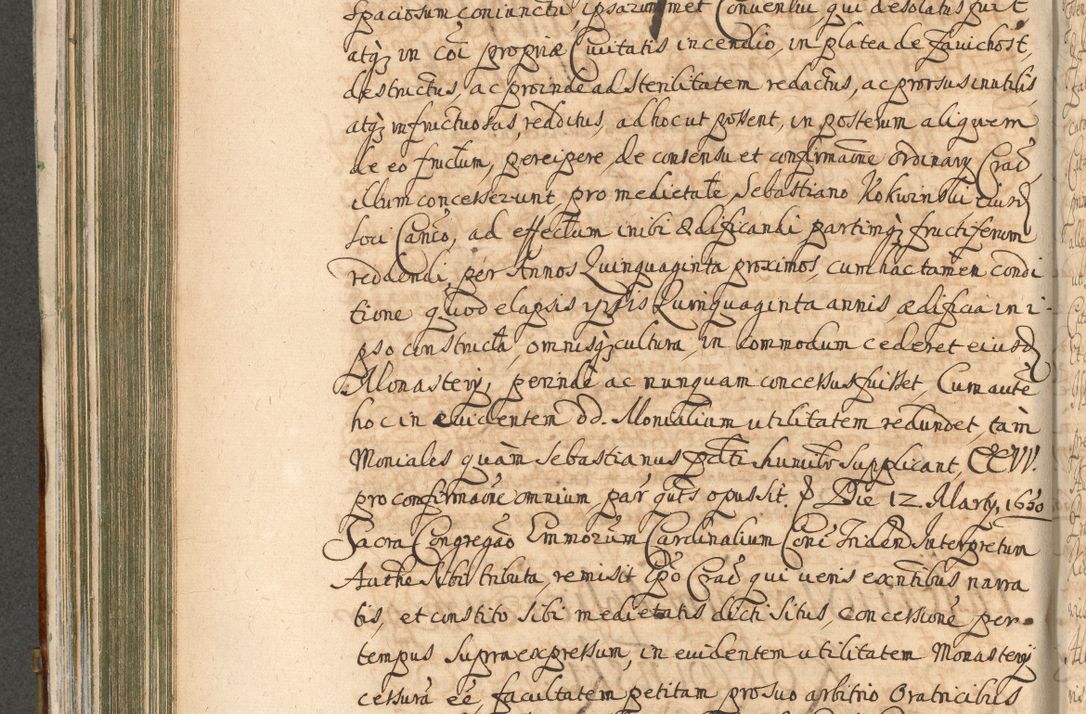 Spaciosum coniunctu, ipsarummet Conventui, qui desolatus fuit
atq3 in coi propriæ Civitatis incendio, in platea de Zavichost,
destructus, ac proinde ad sterilitatem redactus, ac prorsus inutiles,
atq3 infructuosas redditus, ad hoc ut possent, in posterum aliquem
de eo fructum, percipere de consensu et confirmaone Ordinarij Crac,
illum concesserunt pro medietate Sebastiano Rokwinskii eiusd
loci Canco, ad effectum inibi ædificandi partimq3 fructiferum
reddendi, per Annos Quinquaginta proximos, cum hac tamen condi
tione quod elapsis ipsis Quinquaginta annis ædificia in i
pso constructa, omnisq3 cultura, in commodum cederet eiusd
Monasterij, perinde ac nunquam concessus fuisset, Cum aute
hoc in evidentem dd. Monialium utilitatem redundet, tam
Moniales quàm Sebastianus pdti humilr supplicant, EEVV.
pro confirmaone omnium par quts opus sit. Die 12. Martij, 1630
Sacra Congregao Emmorum Cardinalium Conc Triden Interpretum
Authe sibi tributa, remisit Epo Crac qui veris exntibus narra
tis, et constito sibi medietatis dicti situs, concessione per
tempus supra expressum, in evidentem utilitatem Monasterij
cessura ee, facultatem petitam pro suo arbitrio Oratricibus